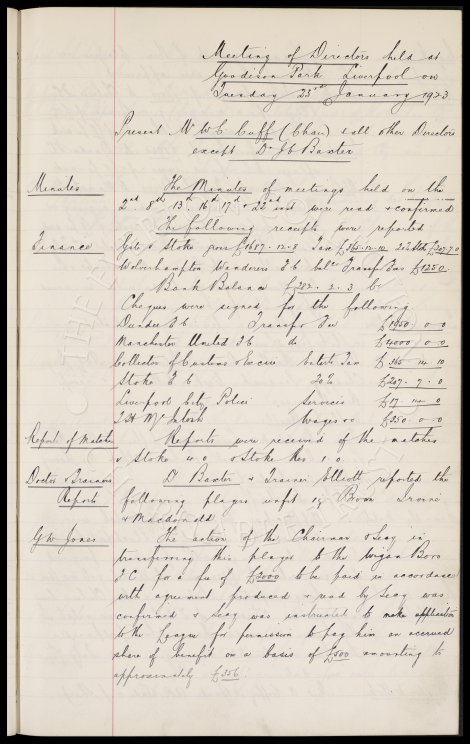 Meeting of Directors held at
Goodison Park Liverpool on
Tuesday 23rd January 1923
Present Mr W C Cuff (Chair) & all other Directors
except Dr J C Baxter
Minutes The Minutes of meetings held on the
2nd 8th 13th 16th 17th & 22nd inst were read & confirmed
The following receipts were reported
Finance Gate v Stoke gross £1687-12-8 Tax £365-12-10 20% Stoke £207.7.0
Wolverhampton Wanderers F C Balce Transfer Fee £1250.
Bank Balance £282.2.3 Cr
Cheques were signed for the following
Dundee F C Transfer Fee £1950-0-0
Manchester United F C do £4000-0-0
Collector of Customs & Excise Enterts Tax £365 14 10
Stoke F C 20% £207.7.0
Liverpool City Police Services £17.14.0
T H McIntosh Wages £250.0.0
Report of Matches Reports were received of the matches
v Stoke 4.0 v Stoke Res 1.0
Doctor & Trainers Dr Baxter & Trainer Elliott reported the
Reports following players unfit Brown Irvine
& Macdonald
G W Jones The action of the Chairman & Secy in
transferring this player to the Wigan Boro
F C for a fee of £3000 to be paid in accordance
with agreement produced & read by Secy was
confirmed & Secy was instructed to make application
to the League for permission to pay him an accrued
share of benefit on a basis of £500 amounting to
approximately £356.